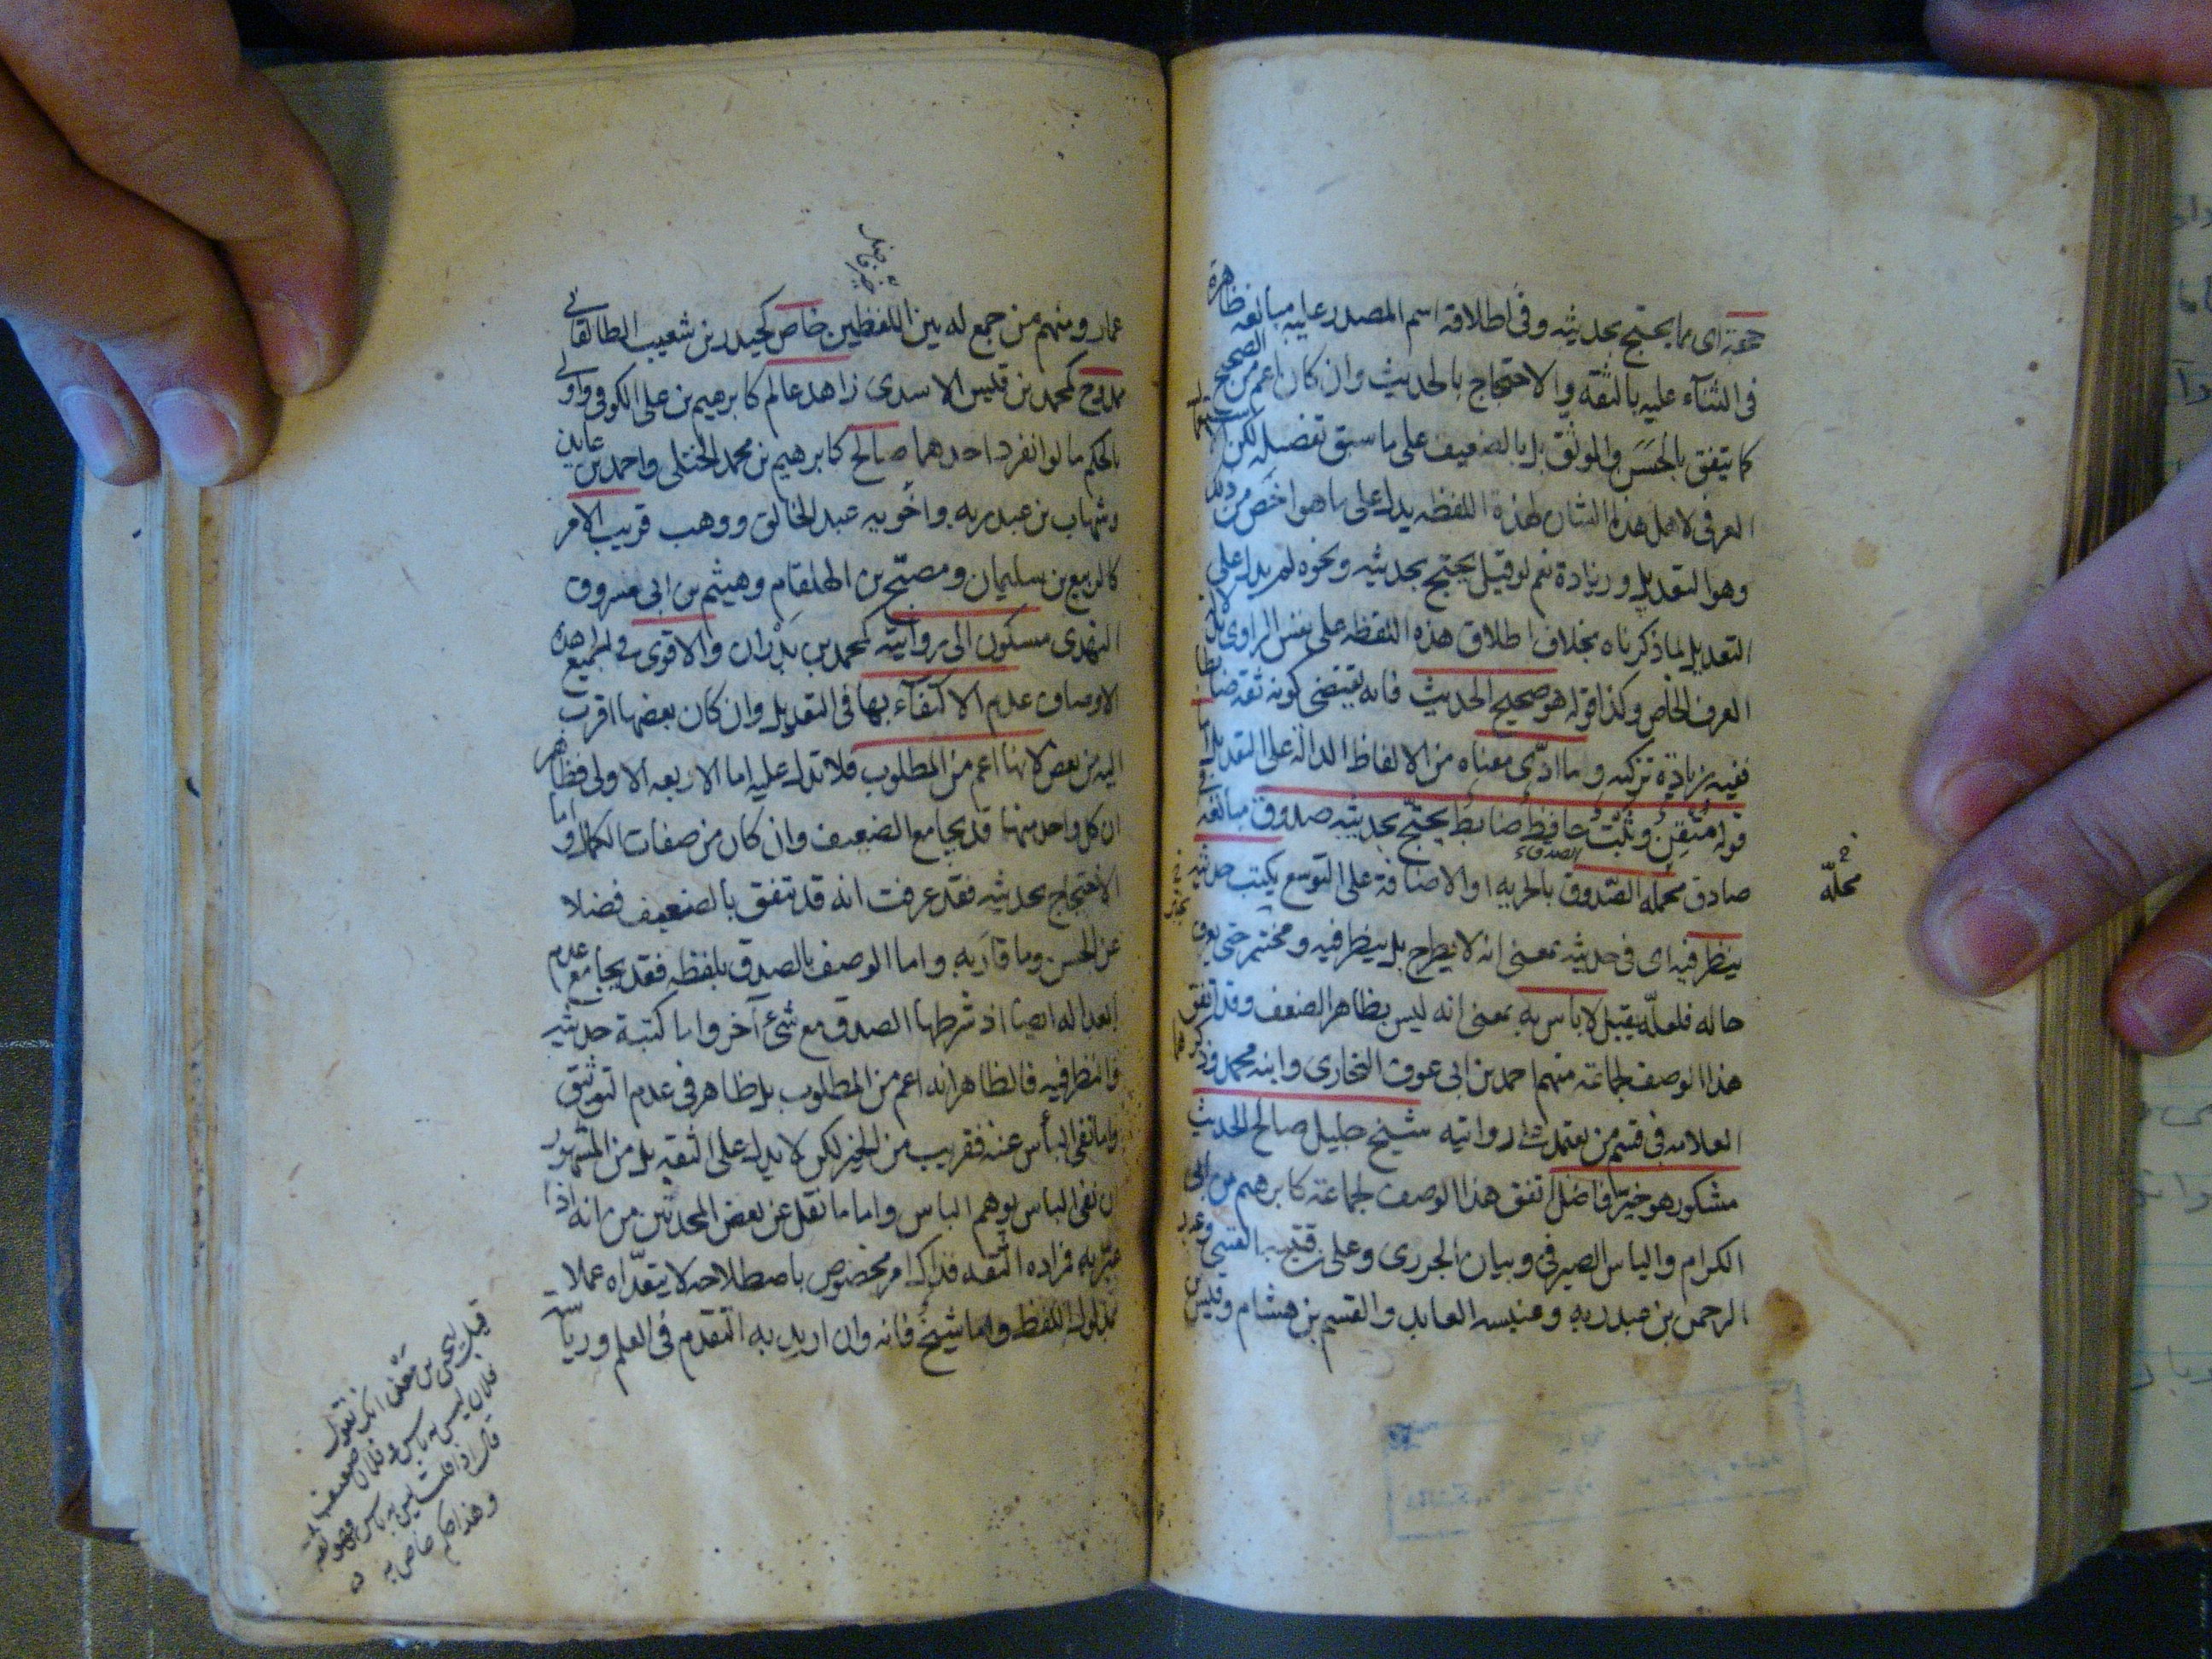 حجة اى مما يحتج بحديثه وفى اطلاقه اسم المصدر عليه مبالغة ظاهرة
فى الثناء عليه بالثقة والاحتجاج بالحديث وان كان اعم من الصحيح
كما يتفق بالحسن والموثق بل بالضعيف على ما سبق تفصيله لكن
العرفى لاهل هذا الشان لهذه اللفظه يدل على ما هو اخص من ذلك
وهو التعديل وزيادة نعم لو قيل يحتج بحديثه ونحوه لم يدل على
التعديل لما ذكرناه بخلاف اطلاق هذه اللفظه على نفس الراوى
العرف الخاص وكذا قوله هو صحيح الحديث فانه يقتضى كونه ثقه ضابطا
ففيه زيادة تزكيه وما ادّى معناه من الالفاظ الدالة على التعديل
قوله متقن وثبت حافظ ضابط يحتج بحديثه صدوق مبالغه
صادق محله الصدوق بالجر به او الاضافة على التوسع يكتب حديثه
الصدقاء
محلّه
ينظر فيه اى فى حديثه بمعنى انه لا يطرح بل ينظر فيه ويختبر حتى يعرف
حاله فلعله يقبل لا باس به بمعنى انه ليس بظاهر الضعف وقد اتفق
هذا الوصف لجماعة منهم احمد بن ابى عوف البخارى وابنه محمد وذكرهما
العلامه فى قسم من يعتمد على روايته شيخ جليل صالح الحديث
مشكور هو خير فاضل اتفق هذا الوصف لجماعة كابرهيم بن ابى
الكرام والياس الصيرفى وبيان الجزرى وعلى بن قتيبه
الرحمن بن عبد ربه وعنبسه العابد والقسم بن هشام وقيس
عمار ومنهم من جمع له بين اللفظين خاص كحيدر بن شعيب الطالقانى
ممدوح كمحمد بن قيس الاسدى زاهد عالم كابرهيم بن على الكوفى واولى
بالحكم ما لو انفرد احدهما صالح كابرهيم بن محمد الختلى واحمد بن عايذ
وشهاب بن عبد ربه واخويه عبد الخالق ووهب قريب الامر
كالربيع بن سليمان ومصبح بن الهلقام وهيثم بن ابى مسروق
النهدى مسكون الى روايته كمحمد بن بدران والاقوى فى الجميع هذه
الاوصاف عدم الاكتفاء بها فى التعديل وان كان بعضها اقرب
اليه من بعض لانها اعم من المطلوب فلا تدل عليه اما الاربعه الاولى فظاهر
ان كل واحد منها قد يجامع الضعيف وان كان من صفات الكمال واما
الاحتجاج بحديثه فقد عرفت انه قد يتفق بالضعيف فضلا
عن الحسن وما قاربه واما الوصف بالصدق بلفظه فقد يجامع عدم
العداله ايضا اذ شرطها الصدق مع شئ آخر واما كتبة حديثه
والنظر فيه فالظاهر انه اعم من المطلوب بل ظاهر فى عدم التوثيق
واما نفى الباس عنه فقريب من الخير لكن لا يدل على الثقه بل من المشهور
ان نفى الباس يوهم الباس واما ما نقل عن بعض المحدثين من انه اذا
عبّر به فمراده الثقه فذاك امر مخصوص باصطلاحه لا يتعداه عملا
بمدلول اللفظ واما شيخ فانه وان اريد به التقدم فى العلم ورياسة
قيل ليحيى بن معين انك تقول
فلان ليس به باس وفلان ضعيف
قال اذا قلت ليس به باس فهو ثقه
وهذا حكم خاص به